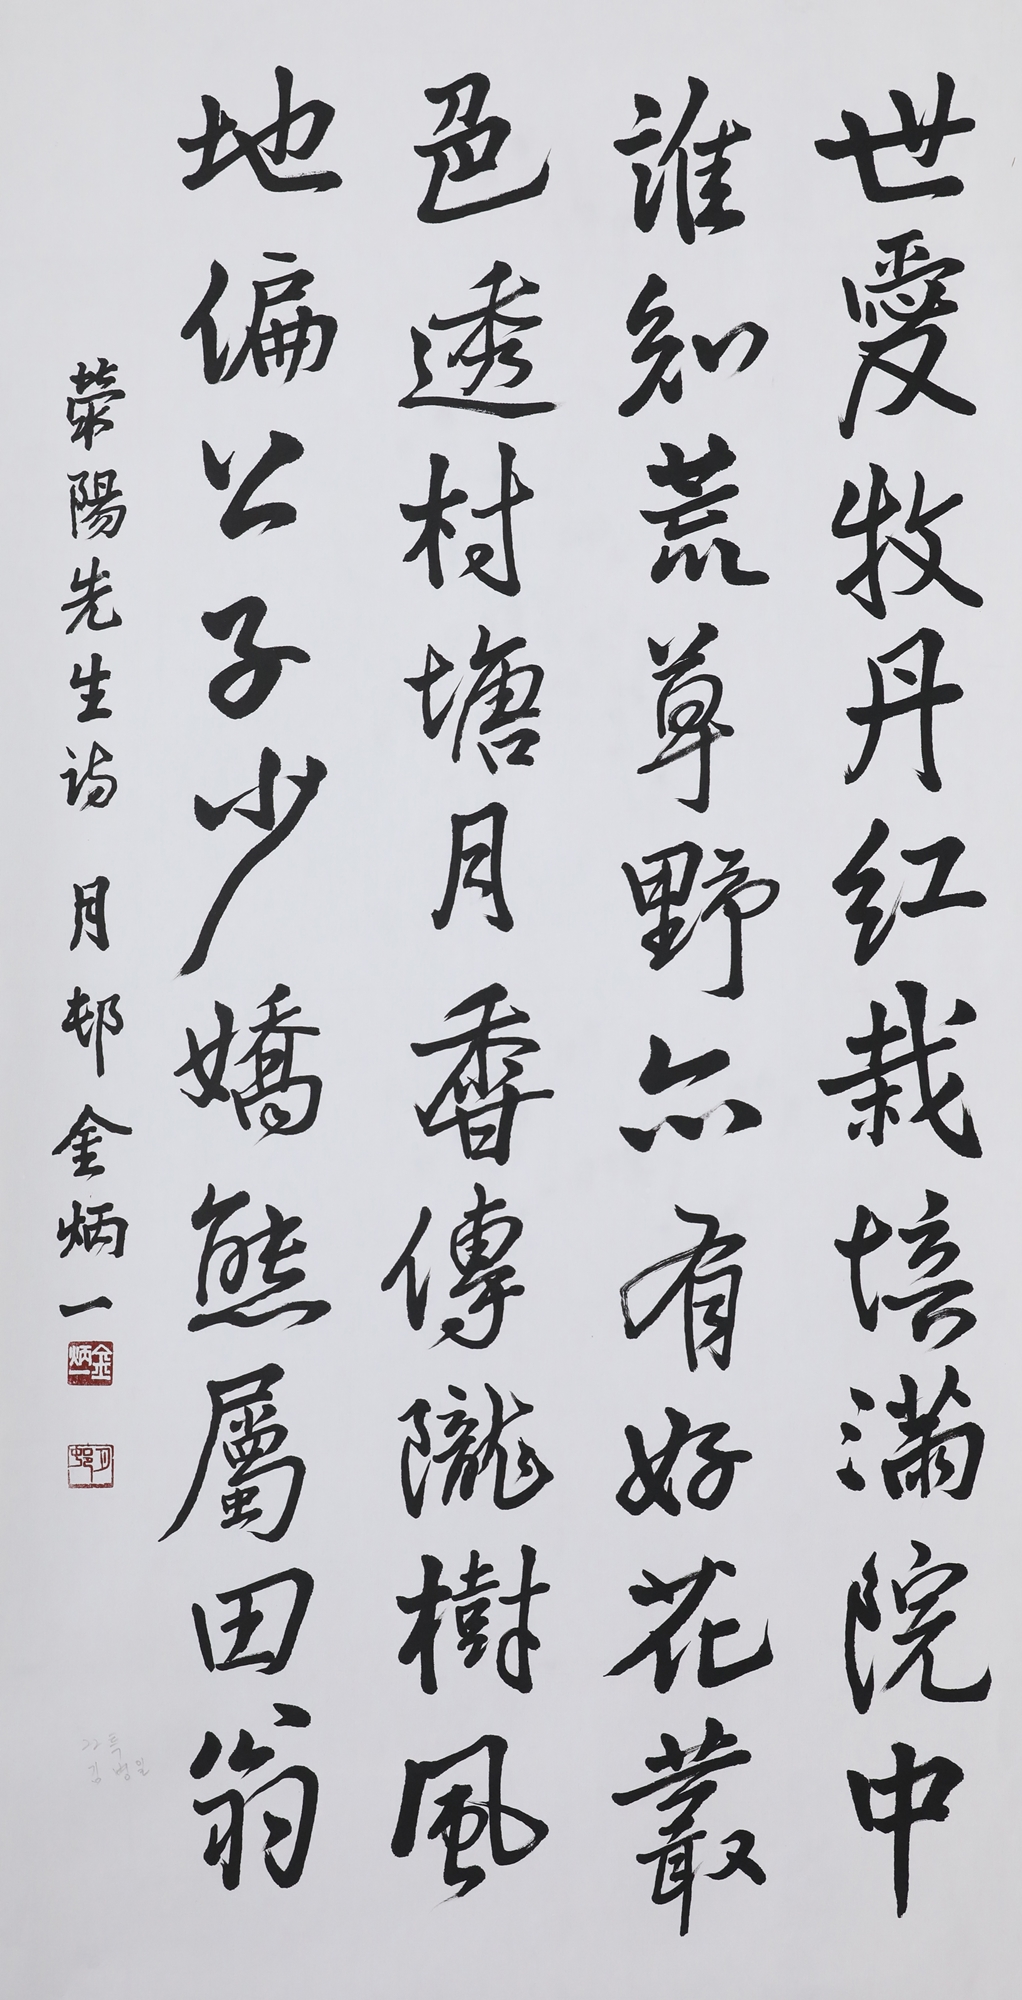 世愛牧丹紅栽培滿院中
誰知荒草野亦有好花叢
色透村塘月香傳隴樹風
地偏公子少嬌態屬田翁
荥陽先生詩 月邨金炳一
金炳一
月邨
22특
김병일